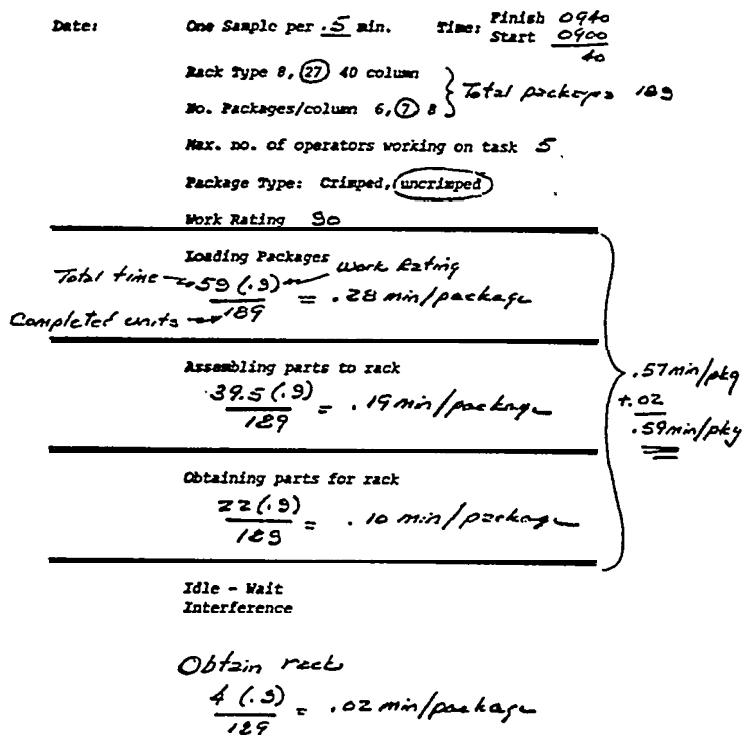 Date: One Sample per .5 min. Time: Finish 0940
Start 0900
40
Rack Type 8, 27 40 column
No. Packages/column 6, 7 8 } Total packages 189
Max. no. of operators working on task 5
Package Type: Crimped, uncrimped
Work Rating 90
Loading Packages
Total time → 59 (.9) ← Work Rating
Completed units → 189 = .28 min/package
Assembling parts to rack
39.5 (.9)
189 = .19 min/package
.57 min/pkg
+.02
.59 min/pkg
Obtaining parts for rack
22 (.9)
189 = .10 min/package
Idle - Wait
Interference
Obtain rack
4 (.9)
189 = .02 min/package